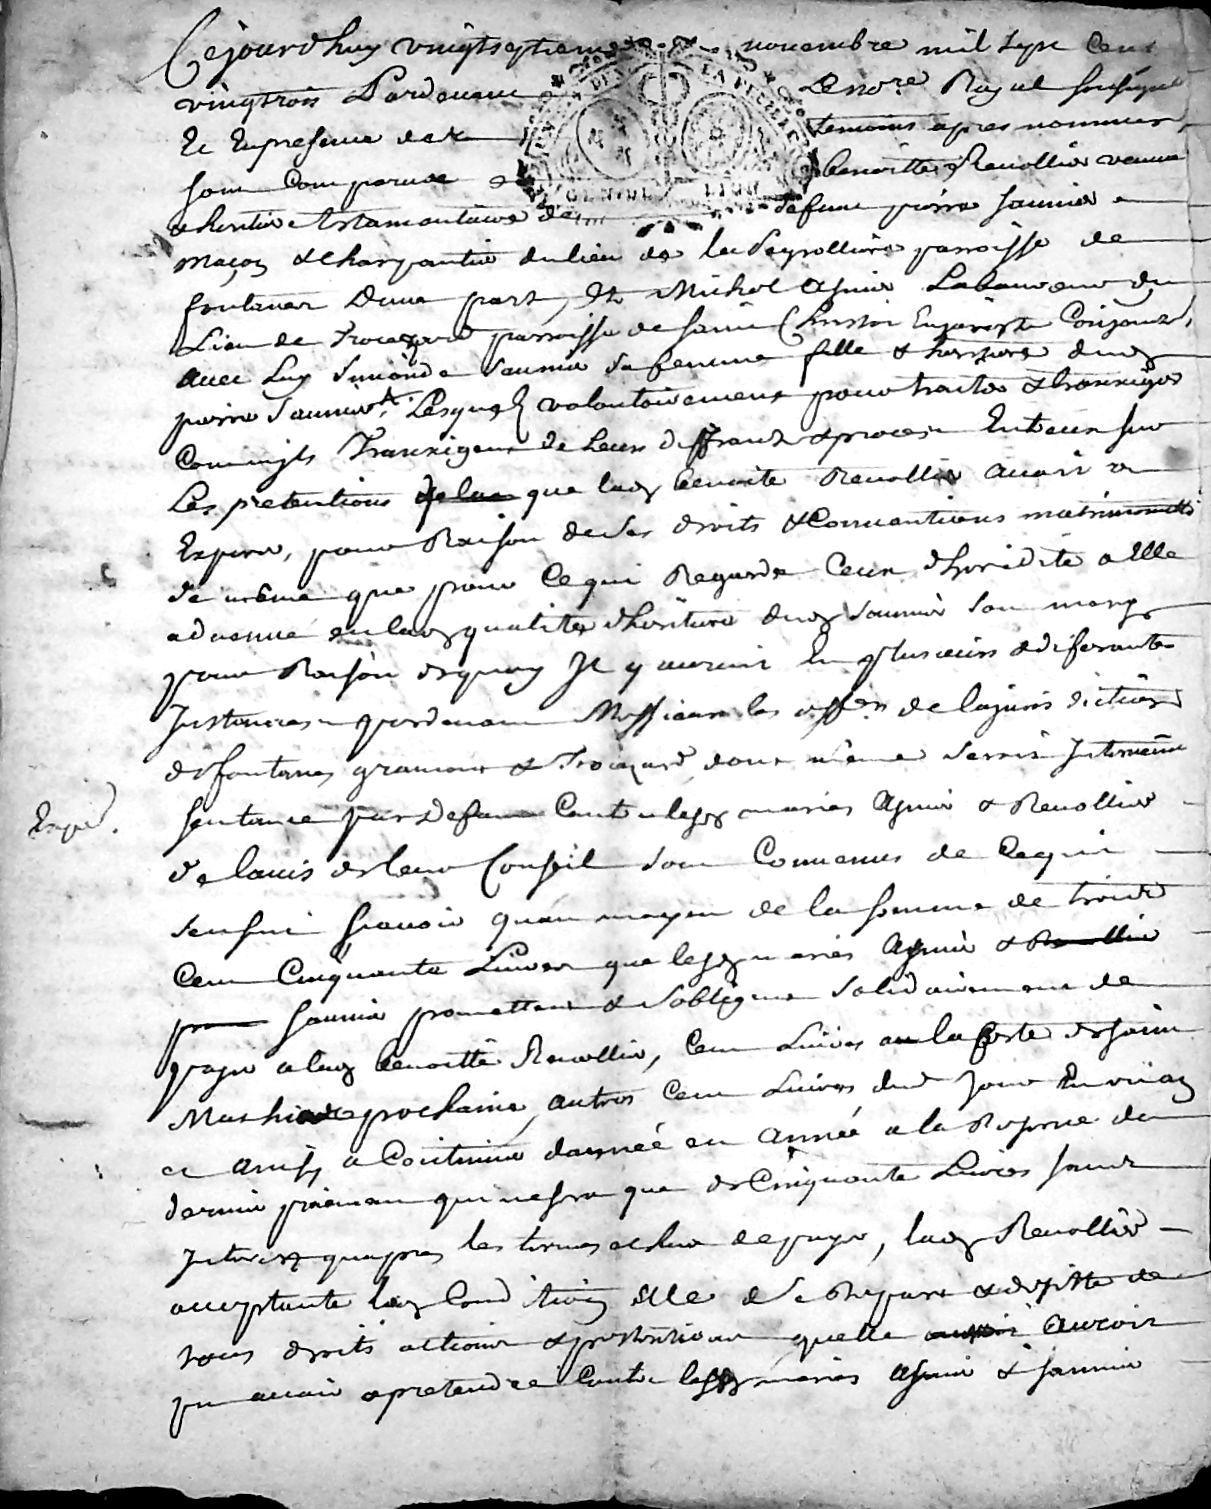 Cejourdhuy vingtseptieme novembre mil sept cent
vingtrois Pardevant Le no.re Royal soussigné
Et En presence des temoins apres nommes,
sont Comparue benoitte Revollier veuve
& heritiere testamentaire de defunt pierre saunier
maçon & charpantier du lieu de la seyrolliere parroisse de
fontanes Dune part, Et Michel asnier Laboureur du
Lieu de trocezard parroisse de saint Christo En jarest Conjoint,
avec Luy simonde saunier sa femme fille & dud
pierre saunier Lesquels volontairement pour traiter & transiger
Comme ils transigent de Leurs differands & proces Enteur sur
Les pretentions que lad benoite Revollier avait
pour Raison de ses droits & Conventions matrimonialles
de même que pour Ce qui Regarde Ceux dheridité a Elle
advenue en lad qualité dheritiere dud saunier son mary
pour Raison dequoy Il y auroit Eu plusieurs & diferantes
Instances pardevant Messieurs les off.ers de la jurisdiction
de fontanes gramont & trocezard dont même seroit Intervenu
Exped.
sentance par defaut Contre lesd mariés asnier & Revollier
de lavis de leur Conseil sont Convenus de Ce qui
sensuit scavoir quau moyen de la somme de trois
Cent Cinquante Livres que lesd mariés asnier & Revollier
saunier promettent & sobligent solidairement de
payer a lad benoitte Revollier, Cent Livres a la feste de saint
Mathieu prochaine, autres Cent Livres dud jour En un an
et ainsy a Continuer dannée en année a la Reserve du
dernier paiement qui ne sera que de Cinquante Livres sans
Interest quapres les termes echus de payer, lad Revollier
acceptante lad Condition Elle se depart & desiste de
tous droits actions & pretentions quelle auroit
pu avoir & pretendre Contre lesd mariés asnier & saunier